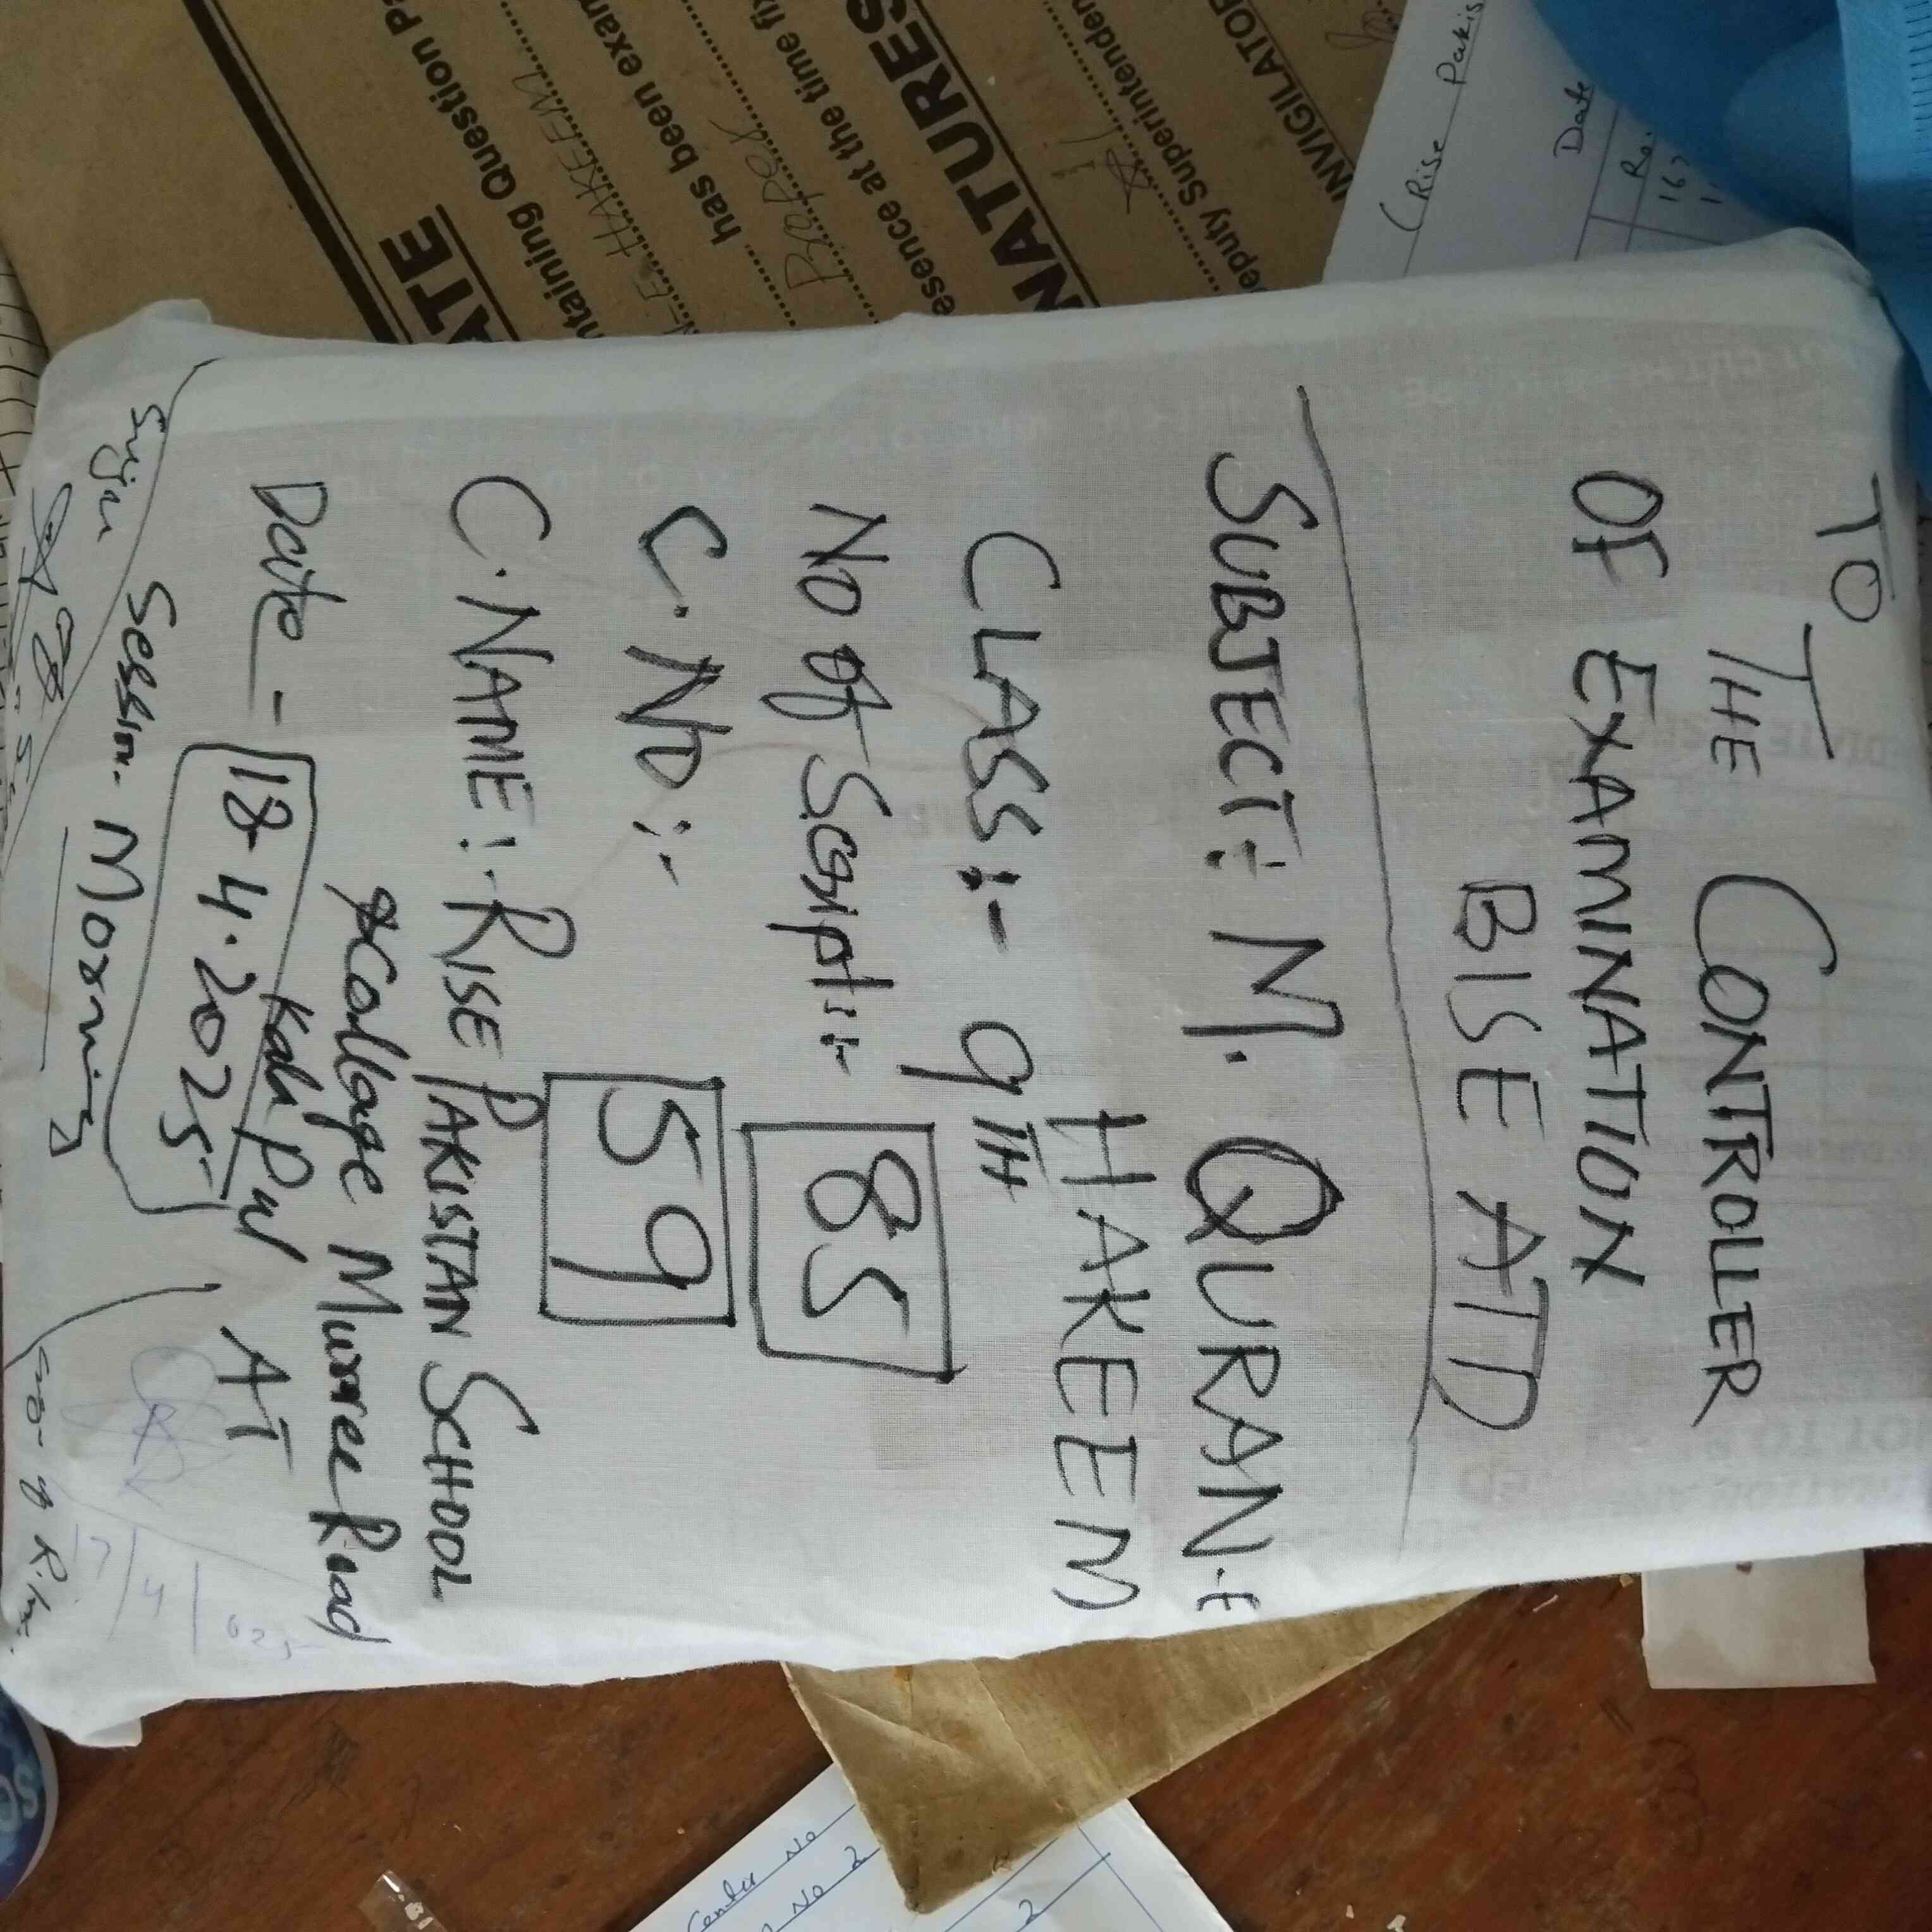 TO
THE CONTROLLER
OF EXAMINATION
BISE ATD
SUBJECT:- M. QURAN-E
HAKEEM
CLASS:- 9TH
No of Script:- 85
C.No:- 59
C.NAME:- RISE PAKISTAN SCHOOL
& Collage Murree Road
Kala Pul AT
Date - 18-4-2025
Session- Morning
ATE
ntaining Question Pa
N-E-HAKEEM
has been exam
esence at the time fix
NATURES
eputy Superintenden
INVIGILATOR
(Rise Pakis
Date
Ro
167
17/4/025
Center No
No 2
2